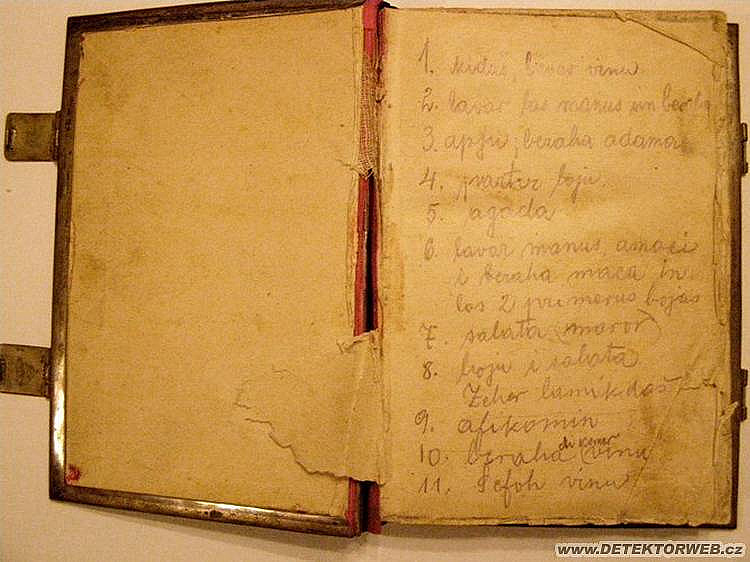 1. kiduš, bevar vinu
2. lavar las manus sin beraha
3. apju, beraha adama
4. partir boju
5. agada
6. lavar manus, amoci
i beraha maca in
los 2 primerus bojus
7. salata (maror)
8. boju i salata
Zeher lamikdaš
9. afikomin
10. beraha vinu
11. Šefoh vinu
www.DETEKTORWEB.cz